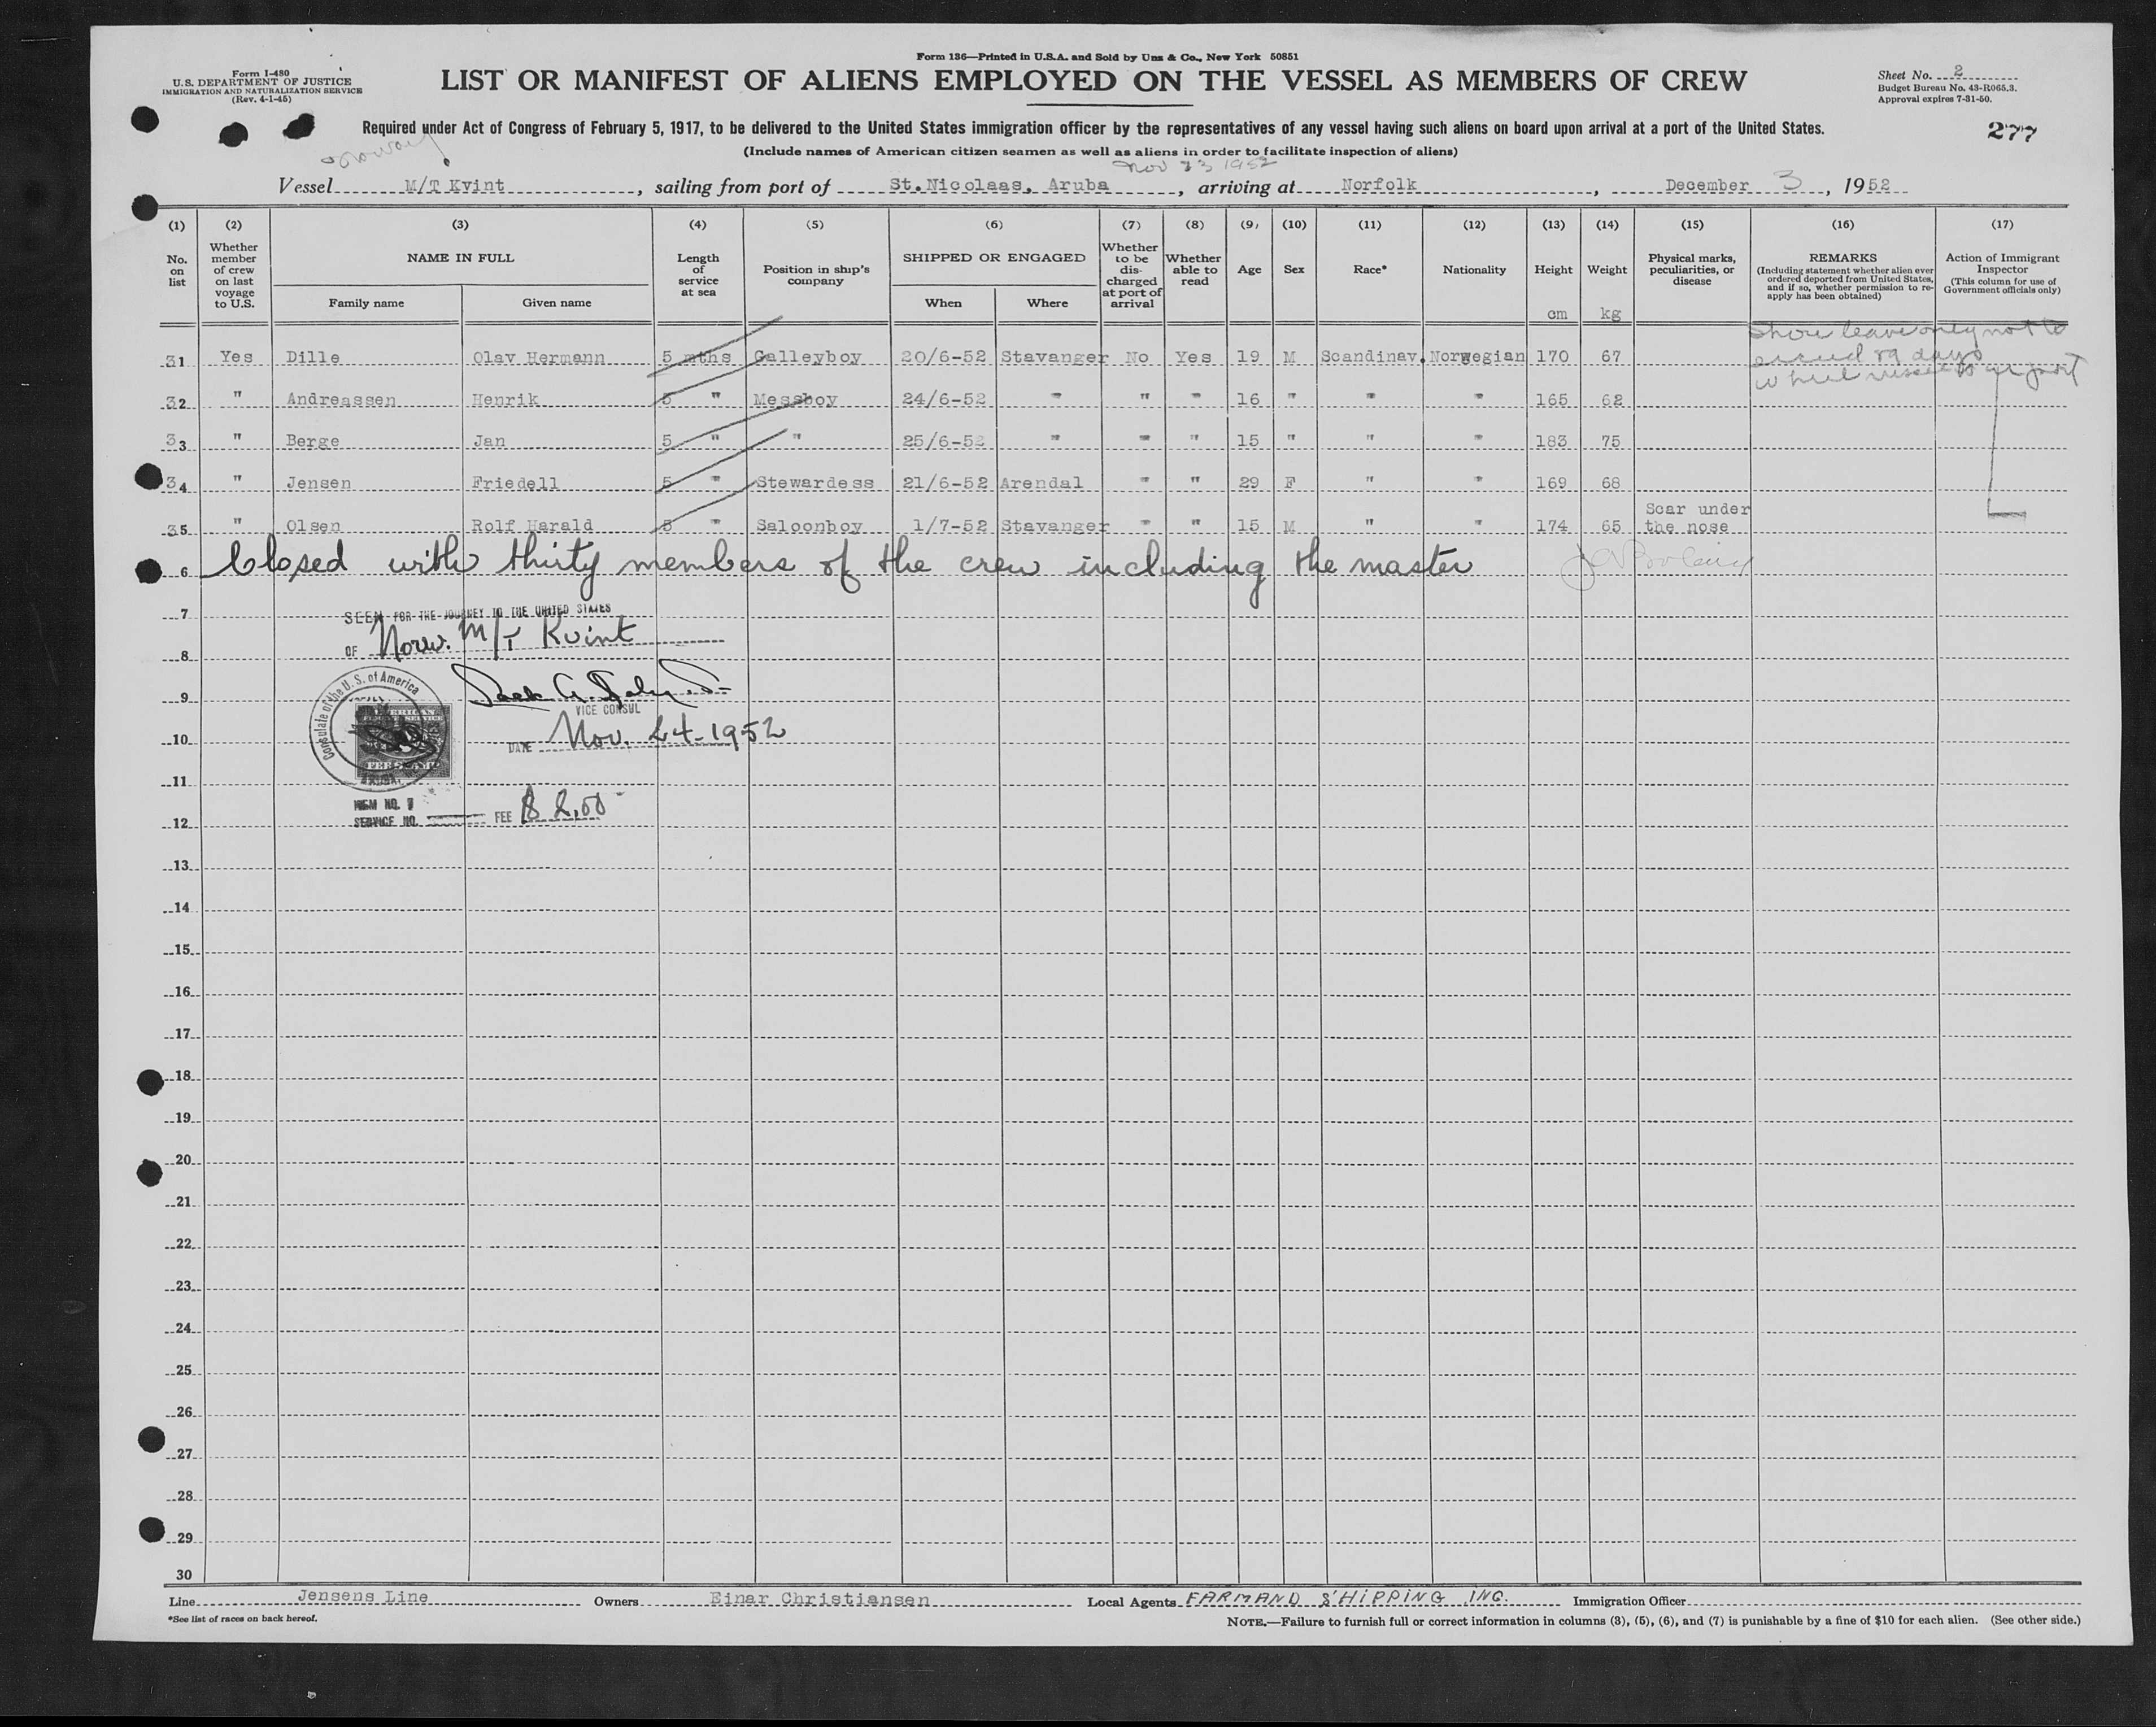 Form 136—Printed in U.S.A. and Sold by Unz & Co., New York 50851
Form I-480
U.S. DEPARTMENT OF JUSTICE
IMMIGRATION AND NATURALIZATION SERVICE
(Rev. 4-1-45)
LIST OR MANIFEST OF ALIENS EMPLOYED ON THE VESSEL AS MEMBERS OF CREW
Sheet No. 2
Budget Bureau No. 43-R065.3.
Approval expires 7-31-50.
277
Required under Act of Congress of February 5, 1917, to be delivered to the United States immigration officer by the representatives of any vessel having such aliens on board upon arrival at a port of the United States.
(Include names of American citizen seamen as well as aliens in order to facilitate inspection of aliens)
Norway
Nov 23 1952
Vessel M/T Kvint, sailing from port of St.Nicolaas, Aruba, arriving at Norfolk, December 3, 1952
(1) (2) (3) (4) (5) (6) (7) (8) (9) (10) (11) (12) (13) (14) (15) (16) (17)
No. on list
Whether member of crew on last voyage to U.S.
NAME IN FULL
Family name
Given name
Length of service at sea
Position in ship's company
SHIPPED OR ENGAGED
When
Where
Whether to be discharged at port of arrival
Whether able to read
Age
Sex
Race*
Nationality
Height
cm
Weight
kg
Physical marks, peculiarities, or disease
REMARKS
(Including statement whether alien ever ordered deported from United States, and if so, whether permission to re-apply has been obtained)
Action of Immigrant Inspector
(This column for use of Government officials only)
Shore leave only not to
exceed 29 days
while vessel is in port
31 Yes Dille Olav Hermann 5 mths Galleyboy 20/6-52 Stavanger No Yes 19 M Scandinav. Norwegian 170 67
32 " Andreassen Henrik 5 " Messboy 24/6-52 " " " 16 " " " 165 62
33 " Berge Jan 5 " " 25/6-52 " " " 15 " " " 183 75
34 " Jensen Friedell 5 " Stewardess 21/6-52 Arendal " " 29 F " " 169 68
35 " Olsen Rolf Harald 5 " Saloonboy 1/7-52 Stavanger " " 15 M " " 174 65 Scar under the nose
6 Closed with thirty members of the crew including the master
7 SEEN FOR THE JOURNEY TO THE UNITED STATES
8 OF Norw. M/T Kvint
Consulate of the U.S. of America
AMERICAN
FOREIGN SERVICE
FEE STAMP
ARUBA,
9
VICE CONSUL
10 DATE Nov. 24-1952
11
ITEM NO. 7
12 SERVICE NO. FEE $ 2,00
13
14
15
16
17
18
19
20
21
22
23
24
25
26
27
28
29
30
Line Jensens Line Owners Einar Christiansen Local Agents FARMAND SHIPPING INC. Immigration Officer
*See list of races on back hereof.
NOTE.—Failure to furnish full or correct information in columns (3), (5), (6), and (7) is punishable by a fine of $10 for each alien. (See other side.)